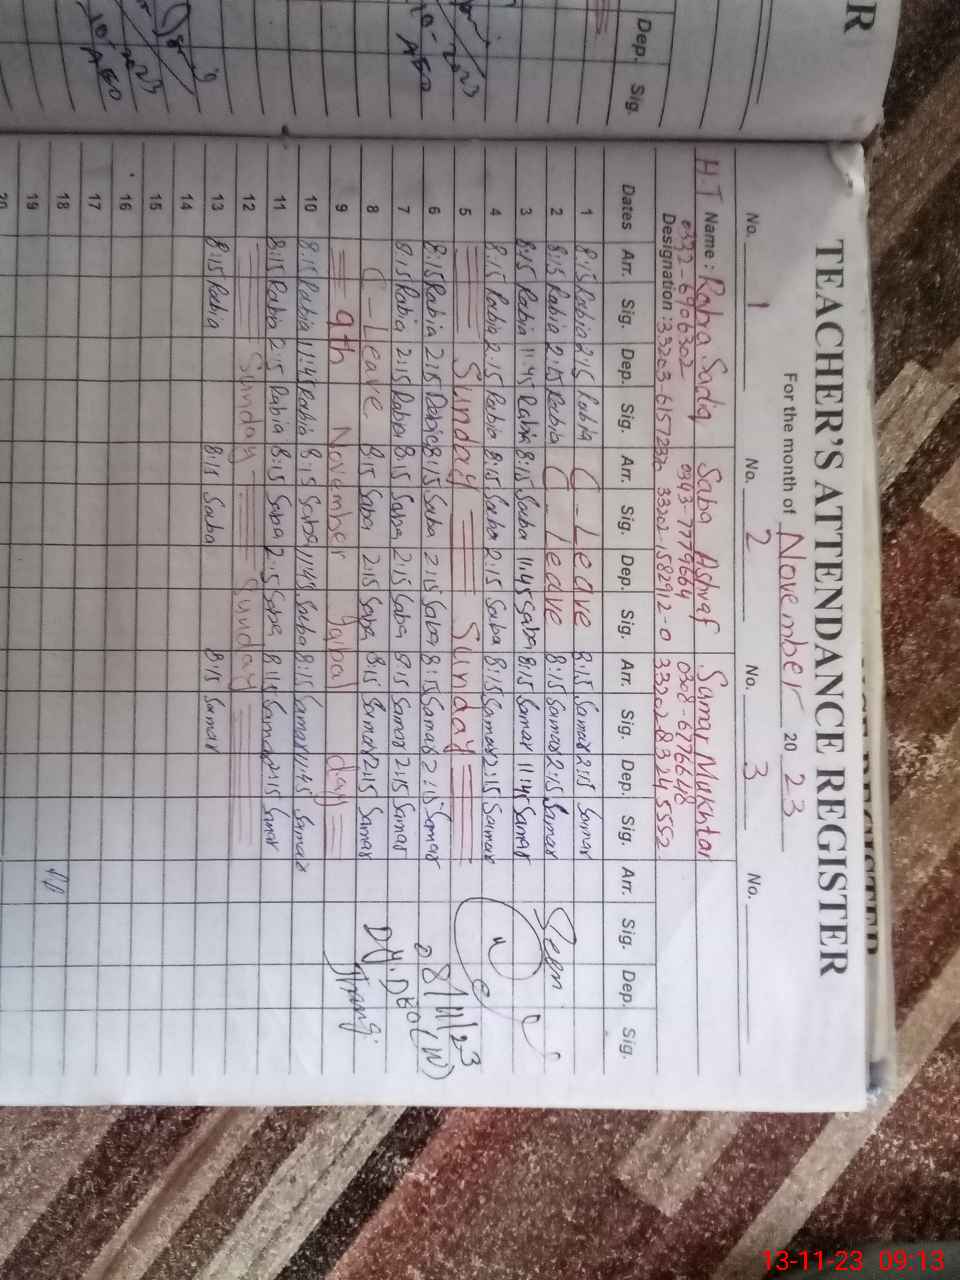 TEACHER'S ATTENDANCE REGISTER
For the month of November 20 23
No. 1 No. 2 No. 3 No.
H.T Name : Rabia Sadia Saba Ashraf Samar Mukhtar
0343-7779664 0308-6776648
Designation : 33202-1582912-0
Dates Arr. Sig. Dep. Sig. Arr. Sig. Dep. Sig. Arr. Sig. Dep. Sig. Arr. Sig. Dep. Sig.
1 8:15 Rabia 2:15 Rabia C-Leave 2:15 Samar 2:15 Samar
2 8:15 Rabia 2:15 Rabia C-Leave 8:15 Samar 2:15 Samar Seen
3 8:15 Rabia 11:45 Rabia 8:15 Saba 11:45 Saba 8:15 Samar 11:45 Samar
4 8:15 Rabia 2:15 Rabia 8:15 Saba 2:15 Saba 8:15 Samar 2:15 Samar
5 Sunday Sunday
6 8:15 Rabia 2:15 Rabia 8:15 Saba 2:15 Saba 8:15 Samar 2:15 Samar 8/11/23
7 8:15 Rabia 2:15 Rabia 8:15 Saba 2:15 Saba 8:15 Samar 2:15 Samar Dy. DEO (W)
8 C-Leave 8:15 Saba 2:15 Saba 8:15 Samar 2:15 Samar Jhang
9 9th November Iqbal day
10 8:15 Rabia 11:45 Rabia 8:15 Saba 11:45 Saba 8:15 Samar 11:45 Samar
11 8:15 Rabia 2:15 Rabia 8:15 Saba 2:15 Saba 8:15 Samar 2:15 Samar
12 Sunday Sunday
13 8:15 Rabia 8:15 Saba 8:15 Samar
14
15
16
17
18
19
20
R
Dep. Sig.
13-11-23 09:13